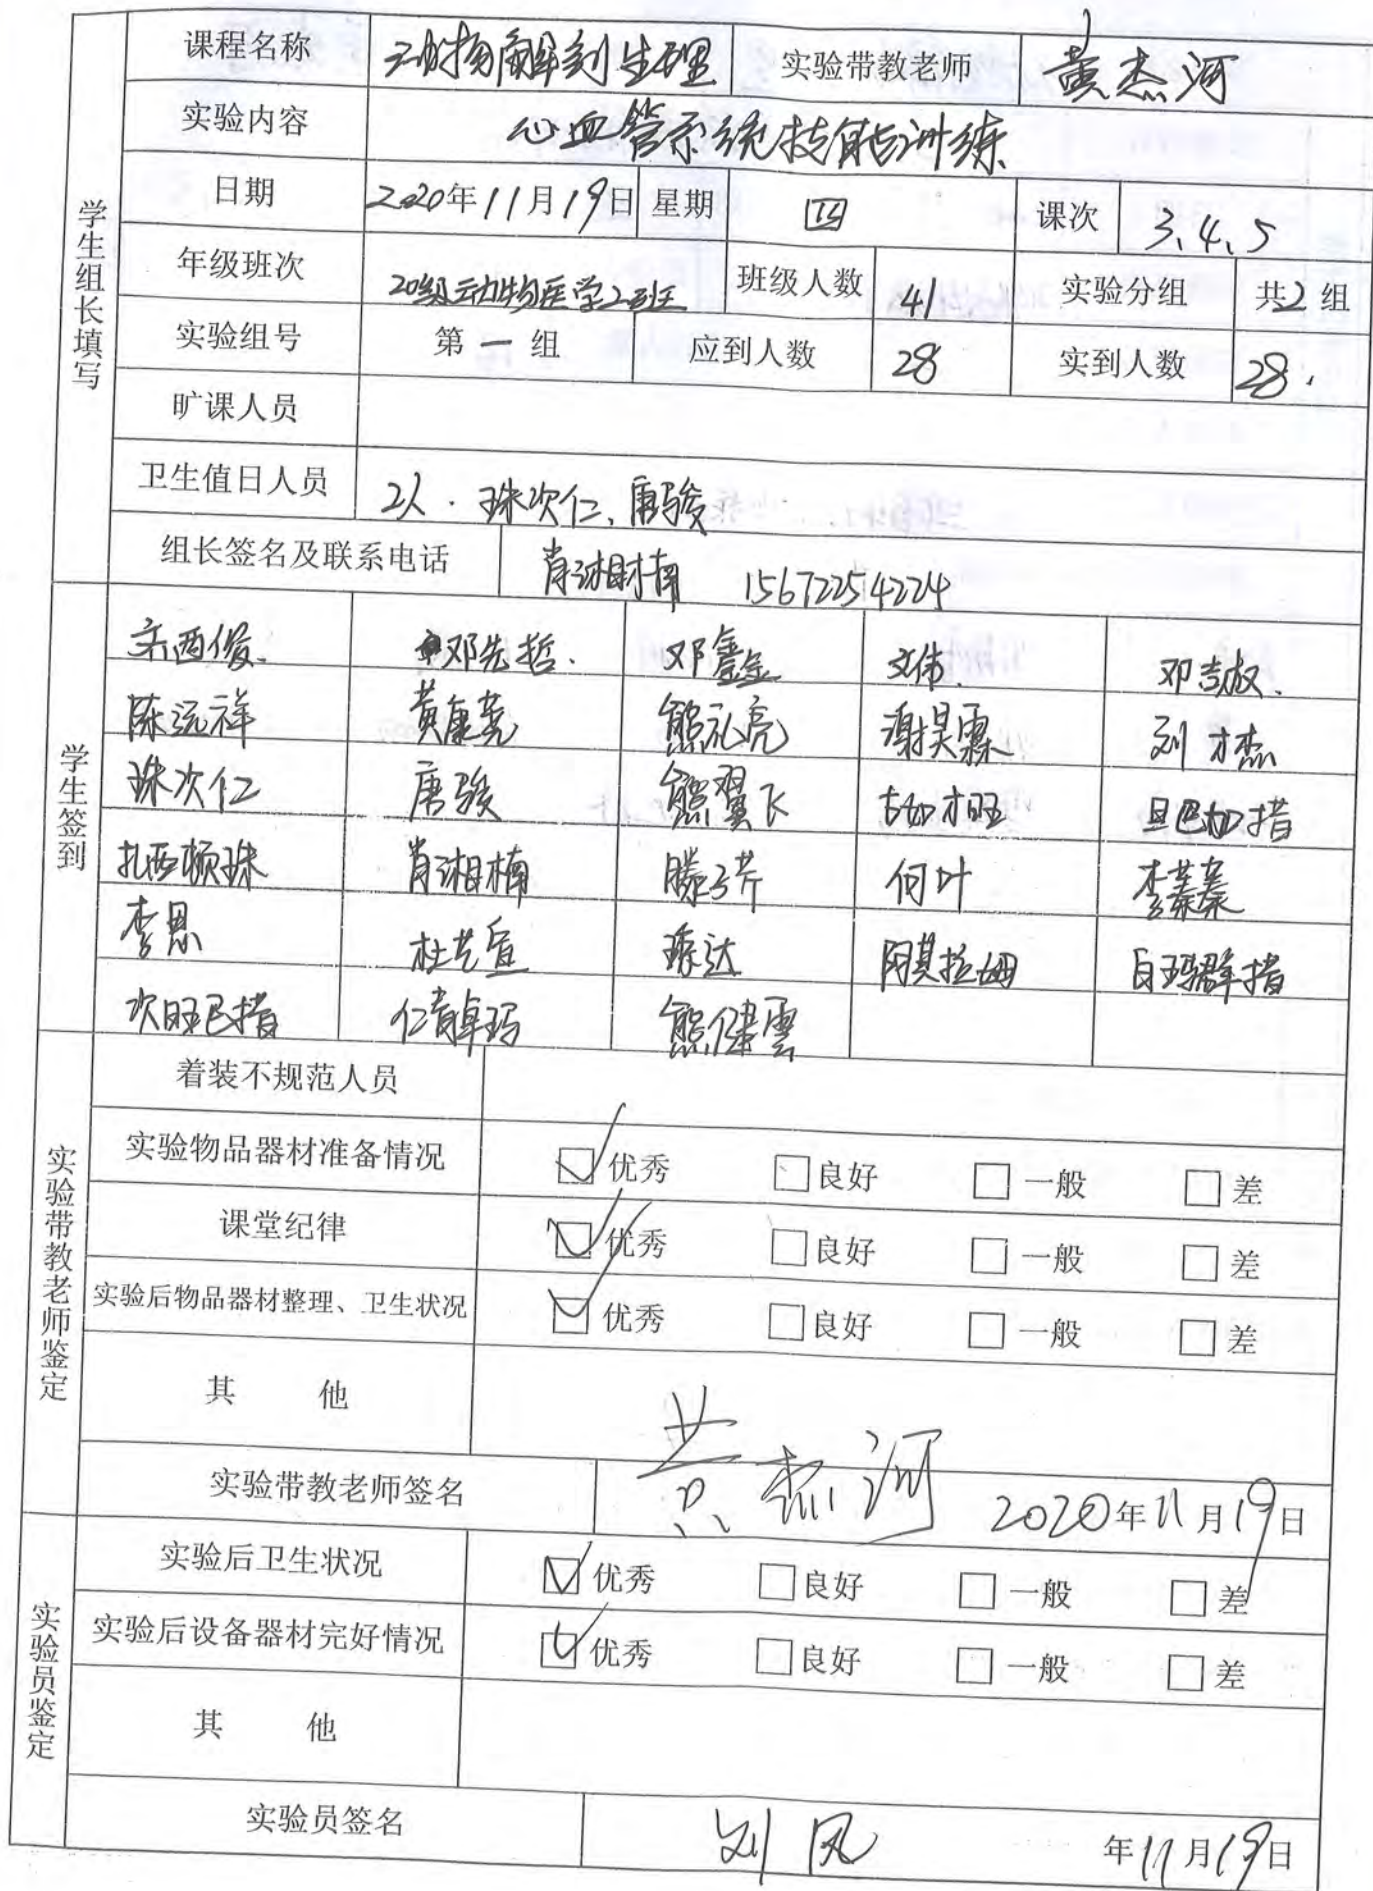 学生组长填写
课程名称 动物解剖生理 实验带教老师 黄杰河
实验内容 心血管系统技能训练
日期 2020年11月19日 星期 四 课次 3、4、5
年级班次 20级动物医学2班 班级人数 41 实验分组 共2组
实验组号 第一组 应到人数 28 实到人数 28.
旷课人员
卫生值日人员 2人. 珠次仁、唐骏
组长签名及联系电话 肖湘楠 15672254224
学生签到
邓先哲. 邓鑫 文伟.
陈远祥 黄康尧 熊礼亮 谢昊霖 刘才杰
珠次仁 唐骏 熊翼飞 旦巴加措
扎西顿珠 肖湘楠 滕子芹 何叶 李蓁蓁
李思 杜艺宣 琼达 阿其拉姆 白玛群措
次旺巴措 仁青卓玛 熊健雲
实验带教老师鉴定
着装不规范人员
实验物品器材准备情况 ☑优秀 □良好 □一般 □差
课堂纪律 ☑优秀 □良好 □一般 □差
实验后物品器材整理、卫生状况 ☑优秀 □良好 □一般 □差
其 他
实验带教老师签名 黄杰河 2020年11月19日
实验员鉴定
实验后卫生状况 ☑优秀 □良好 □一般 □差
实验后设备器材完好情况 ☑优秀 □良好 □一般 □差
其 他
实验员签名 刘凤 年11月19日